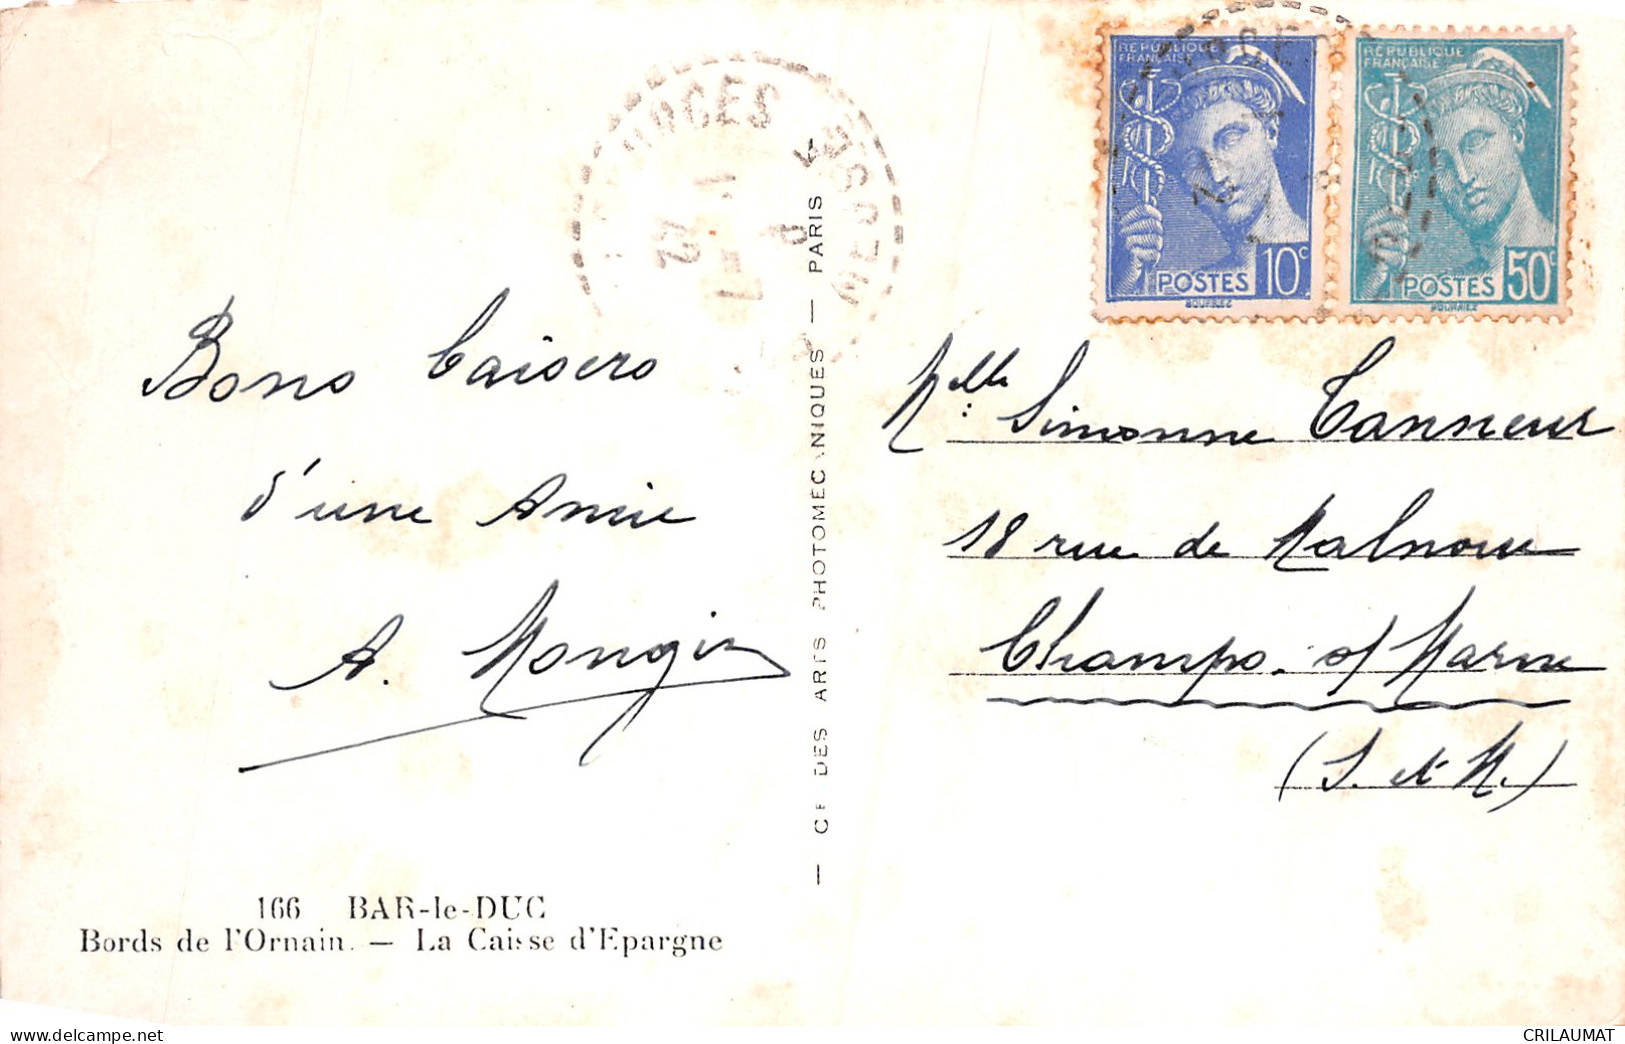 Bons baisers
d'une Amie
A. Mongin
166 BAR-le-DUC
Bords de l'Ornain. — La Caisse d'Epargne
— CIE DES ARTS PHOTOMECANIQUES — PARIS —
MEUSE
RÉPUBLIQUE
FRANÇAISE
POSTES 10c
RÉPUBLIQUE
FRANÇAISE
POSTES 50c
Melle Simonne Tanneur
18 rue de Malnoue
Champs. s/ Marne
(S. et M.)
CRILAUMAT